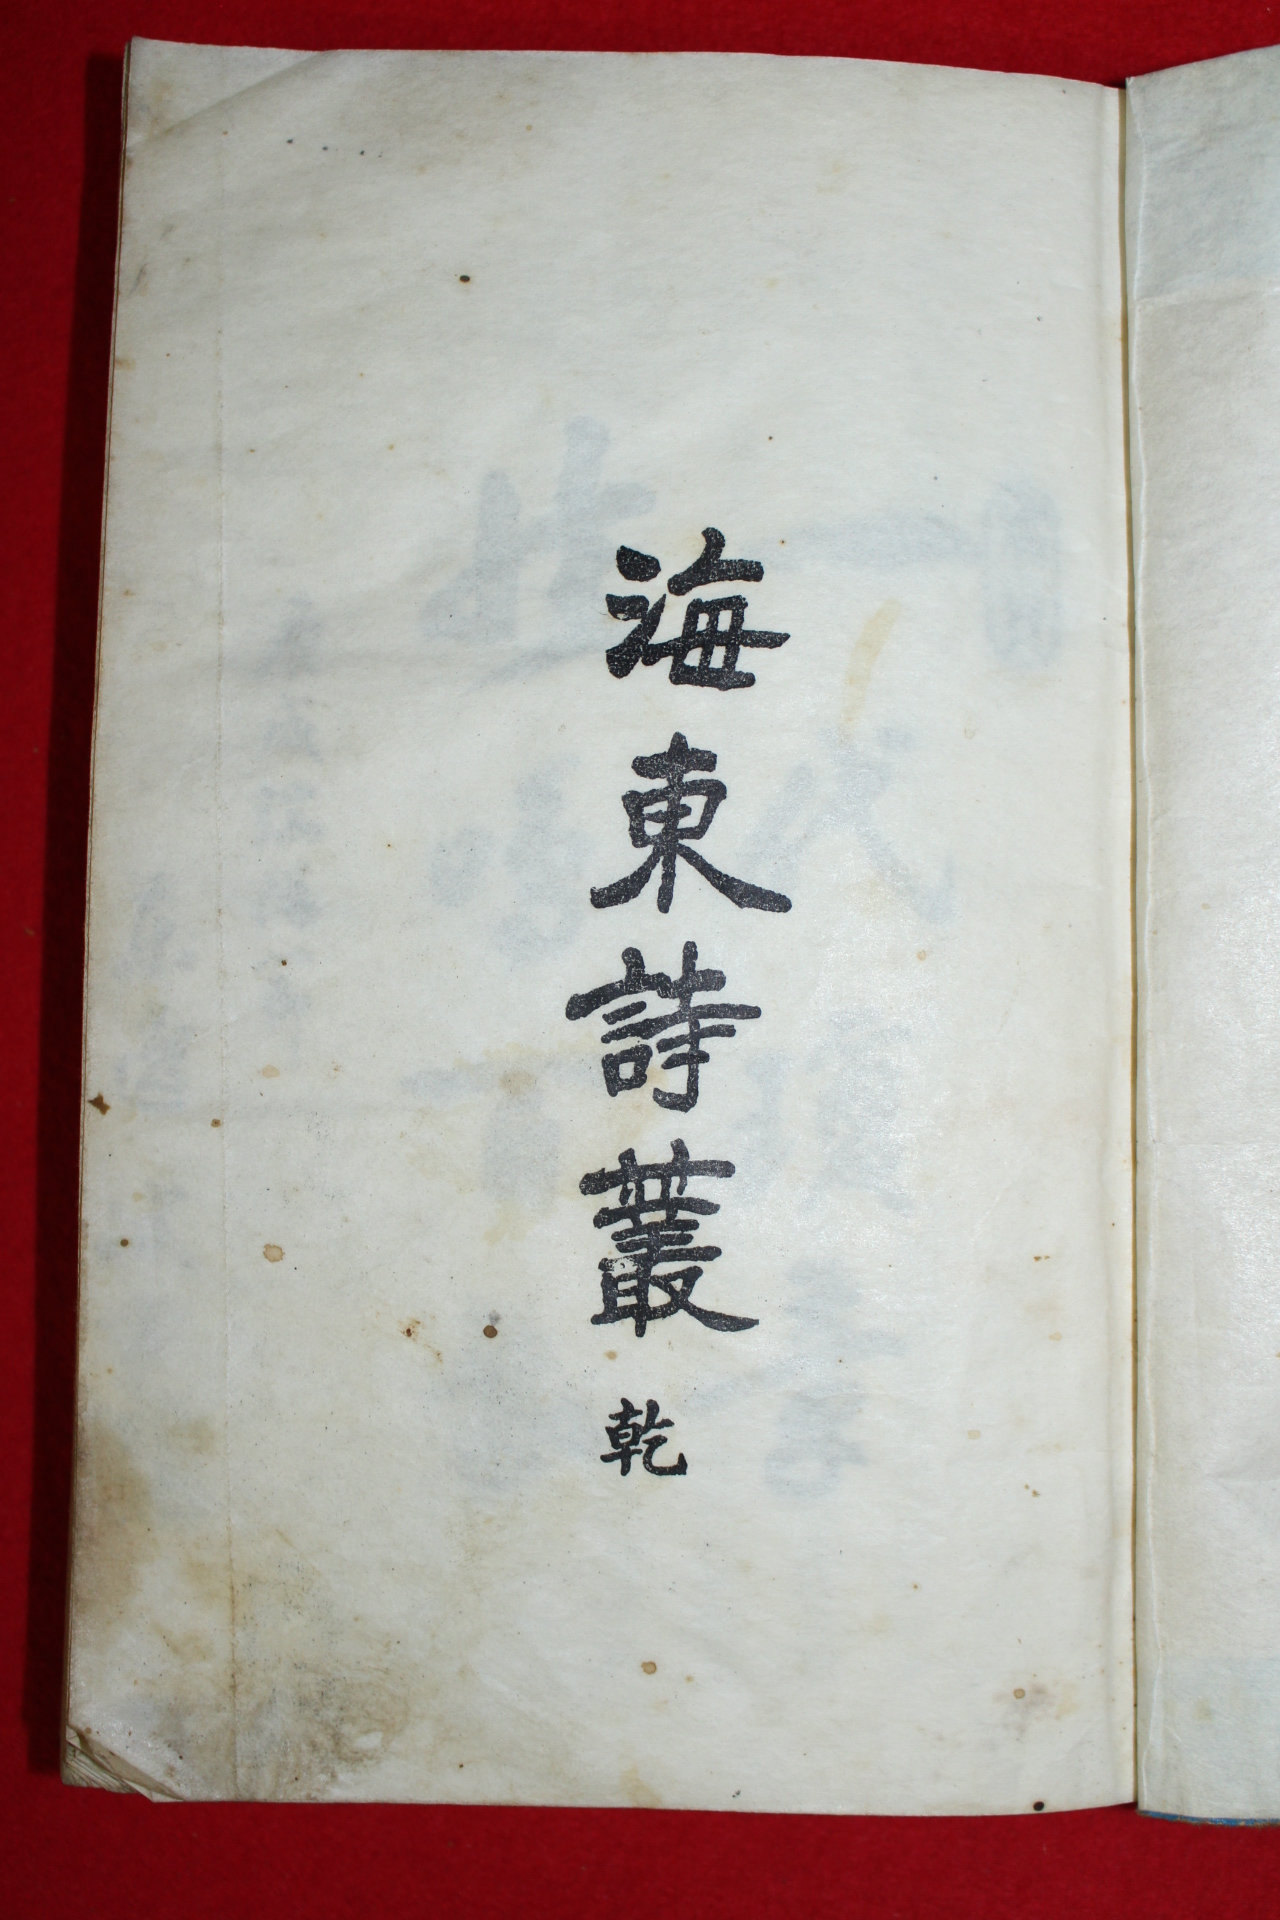 海東詩叢 乾